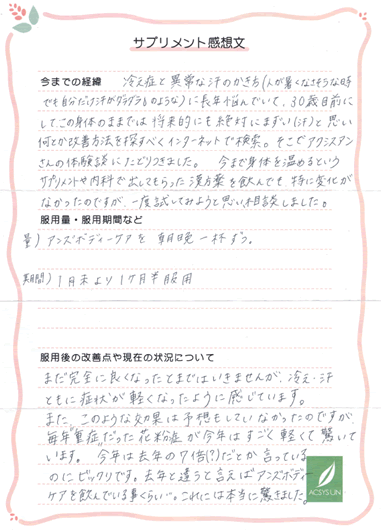 サプリメント感想文
今までの経緯 冷え症と異常な汗のかき方(人が暑くなさそうな時
でも自分だけ汗がダラダラものような)に長年悩んでいて、30歳目前に
してこの身体のままでは将来的にも絶対にまずい(汗)と思い
何とか改善方法を探すべくインターネットで検索。そこでアクシスアン
さんの体験談にたどりつきました。 今まで身体を温めるという
サプリメントや内科で出してもらった漢方薬を飲んでも特に変化が
なかったのですが、一度試してみようと思い相談しました。
服用量・服用期間など
量) アンズボディーケアを 朝晩一杯ずつ。
期間) 1月末より1ヶ月半服用
服用後の改善点や現在の状況について
まだ完全に良くなったとまではいきませんが、冷え・汗
ともに症状が軽くなったように感じています。
また、このような効果は予想もしていなかったのですが、
毎年"重症"だった花粉症が今年はすごく軽くて驚いて
います。 今年は去年の7倍(?)だとか言っている
のにビックリです。去年と違うと言えばアンズボディー
ケアを飲んでいる事くらい…。これには本当に驚きました。
ACSYSUN